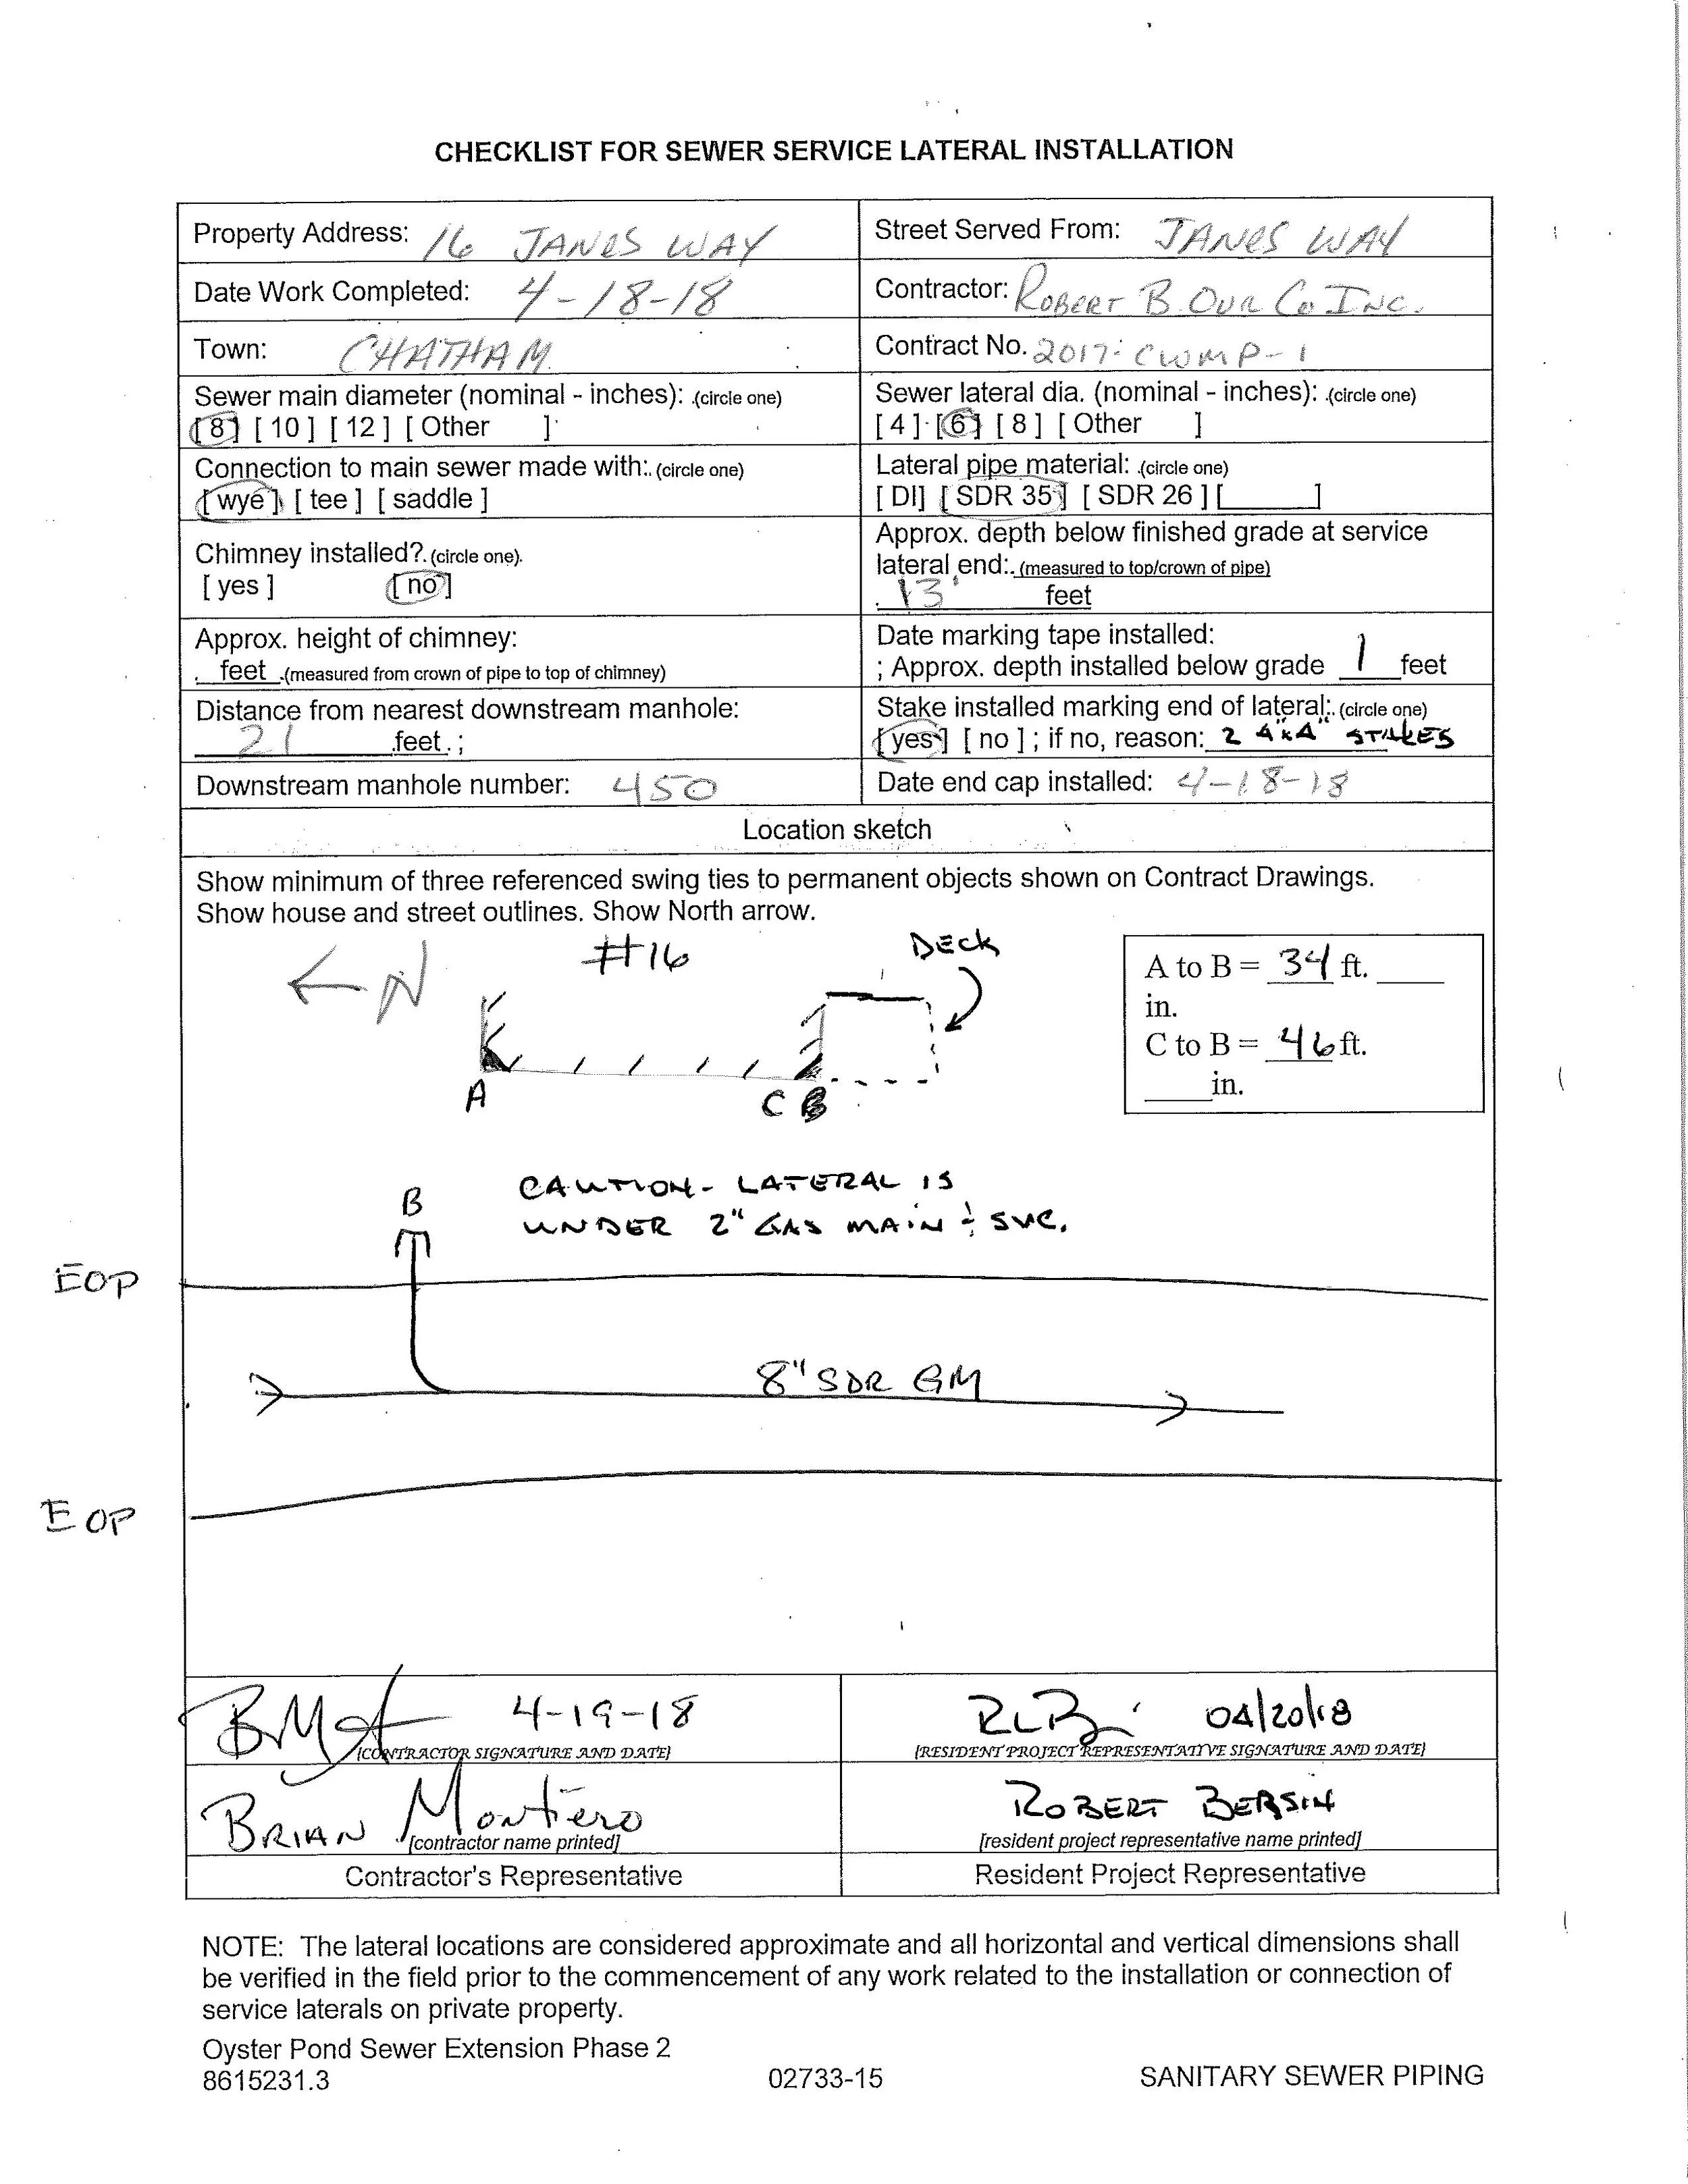 CHECKLIST FOR SEWER SERVICE LATERAL INSTALLATION
Property Address: 16 JANES WAY
Street Served From: JANES WAY
Date Work Completed: 4-18-18
Contractor: ROBERT B. OUR CO INC.
Town: CHATHAM
Contract No. 2017-CWMP-1
Sewer main diameter (nominal - inches): (circle one)
[8] [10] [12] [Other ]
Sewer lateral dia. (nominal - inches): (circle one)
[4] [6] [8] [Other ]
Connection to main sewer made with: (circle one)
[wye] [tee] [saddle]
Lateral pipe material: (circle one)
[DI] [SDR 35] [SDR 26] [_____]
Chimney installed? (circle one).
[yes] [no]
Approx. depth below finished grade at service
lateral end: (measured to top/crown of pipe)
13' feet
Approx. height of chimney:
feet (measured from crown of pipe to top of chimney)
Date marking tape installed:
; Approx. depth installed below grade 1 feet
Distance from nearest downstream manhole:
21 feet ;
Stake installed marking end of lateral: (circle one)
[yes] [no] ; if no, reason: 2 4"x4" STAKES
Downstream manhole number: 450
Date end cap installed: 4-18-18
Location sketch
Show minimum of three referenced swing ties to permanent objects shown on Contract Drawings.
Show house and street outlines. Show North arrow.
N
#16
DECK
A to B = 34 ft. ____
in.
C to B = 46 ft.
____ in.
A
C
B
CAUTION - LATERAL IS
UNDER 2" GAS MAIN & SVC.
EOP
8" SDR GM
EOP
4-19-18
04/20/18
[CONTRACTOR SIGNATURE AND DATE]
[RESIDENT PROJECT REPRESENTATIVE SIGNATURE AND DATE]
BRIAN Montiero
ROBERT BERSIN
[contractor name printed]
[resident project representative name printed]
Contractor's Representative
Resident Project Representative
NOTE: The lateral locations are considered approximate and all horizontal and vertical dimensions shall
be verified in the field prior to the commencement of any work related to the installation or connection of
service laterals on private property.
Oyster Pond Sewer Extension Phase 2
8615231.3
02733-15
SANITARY SEWER PIPING